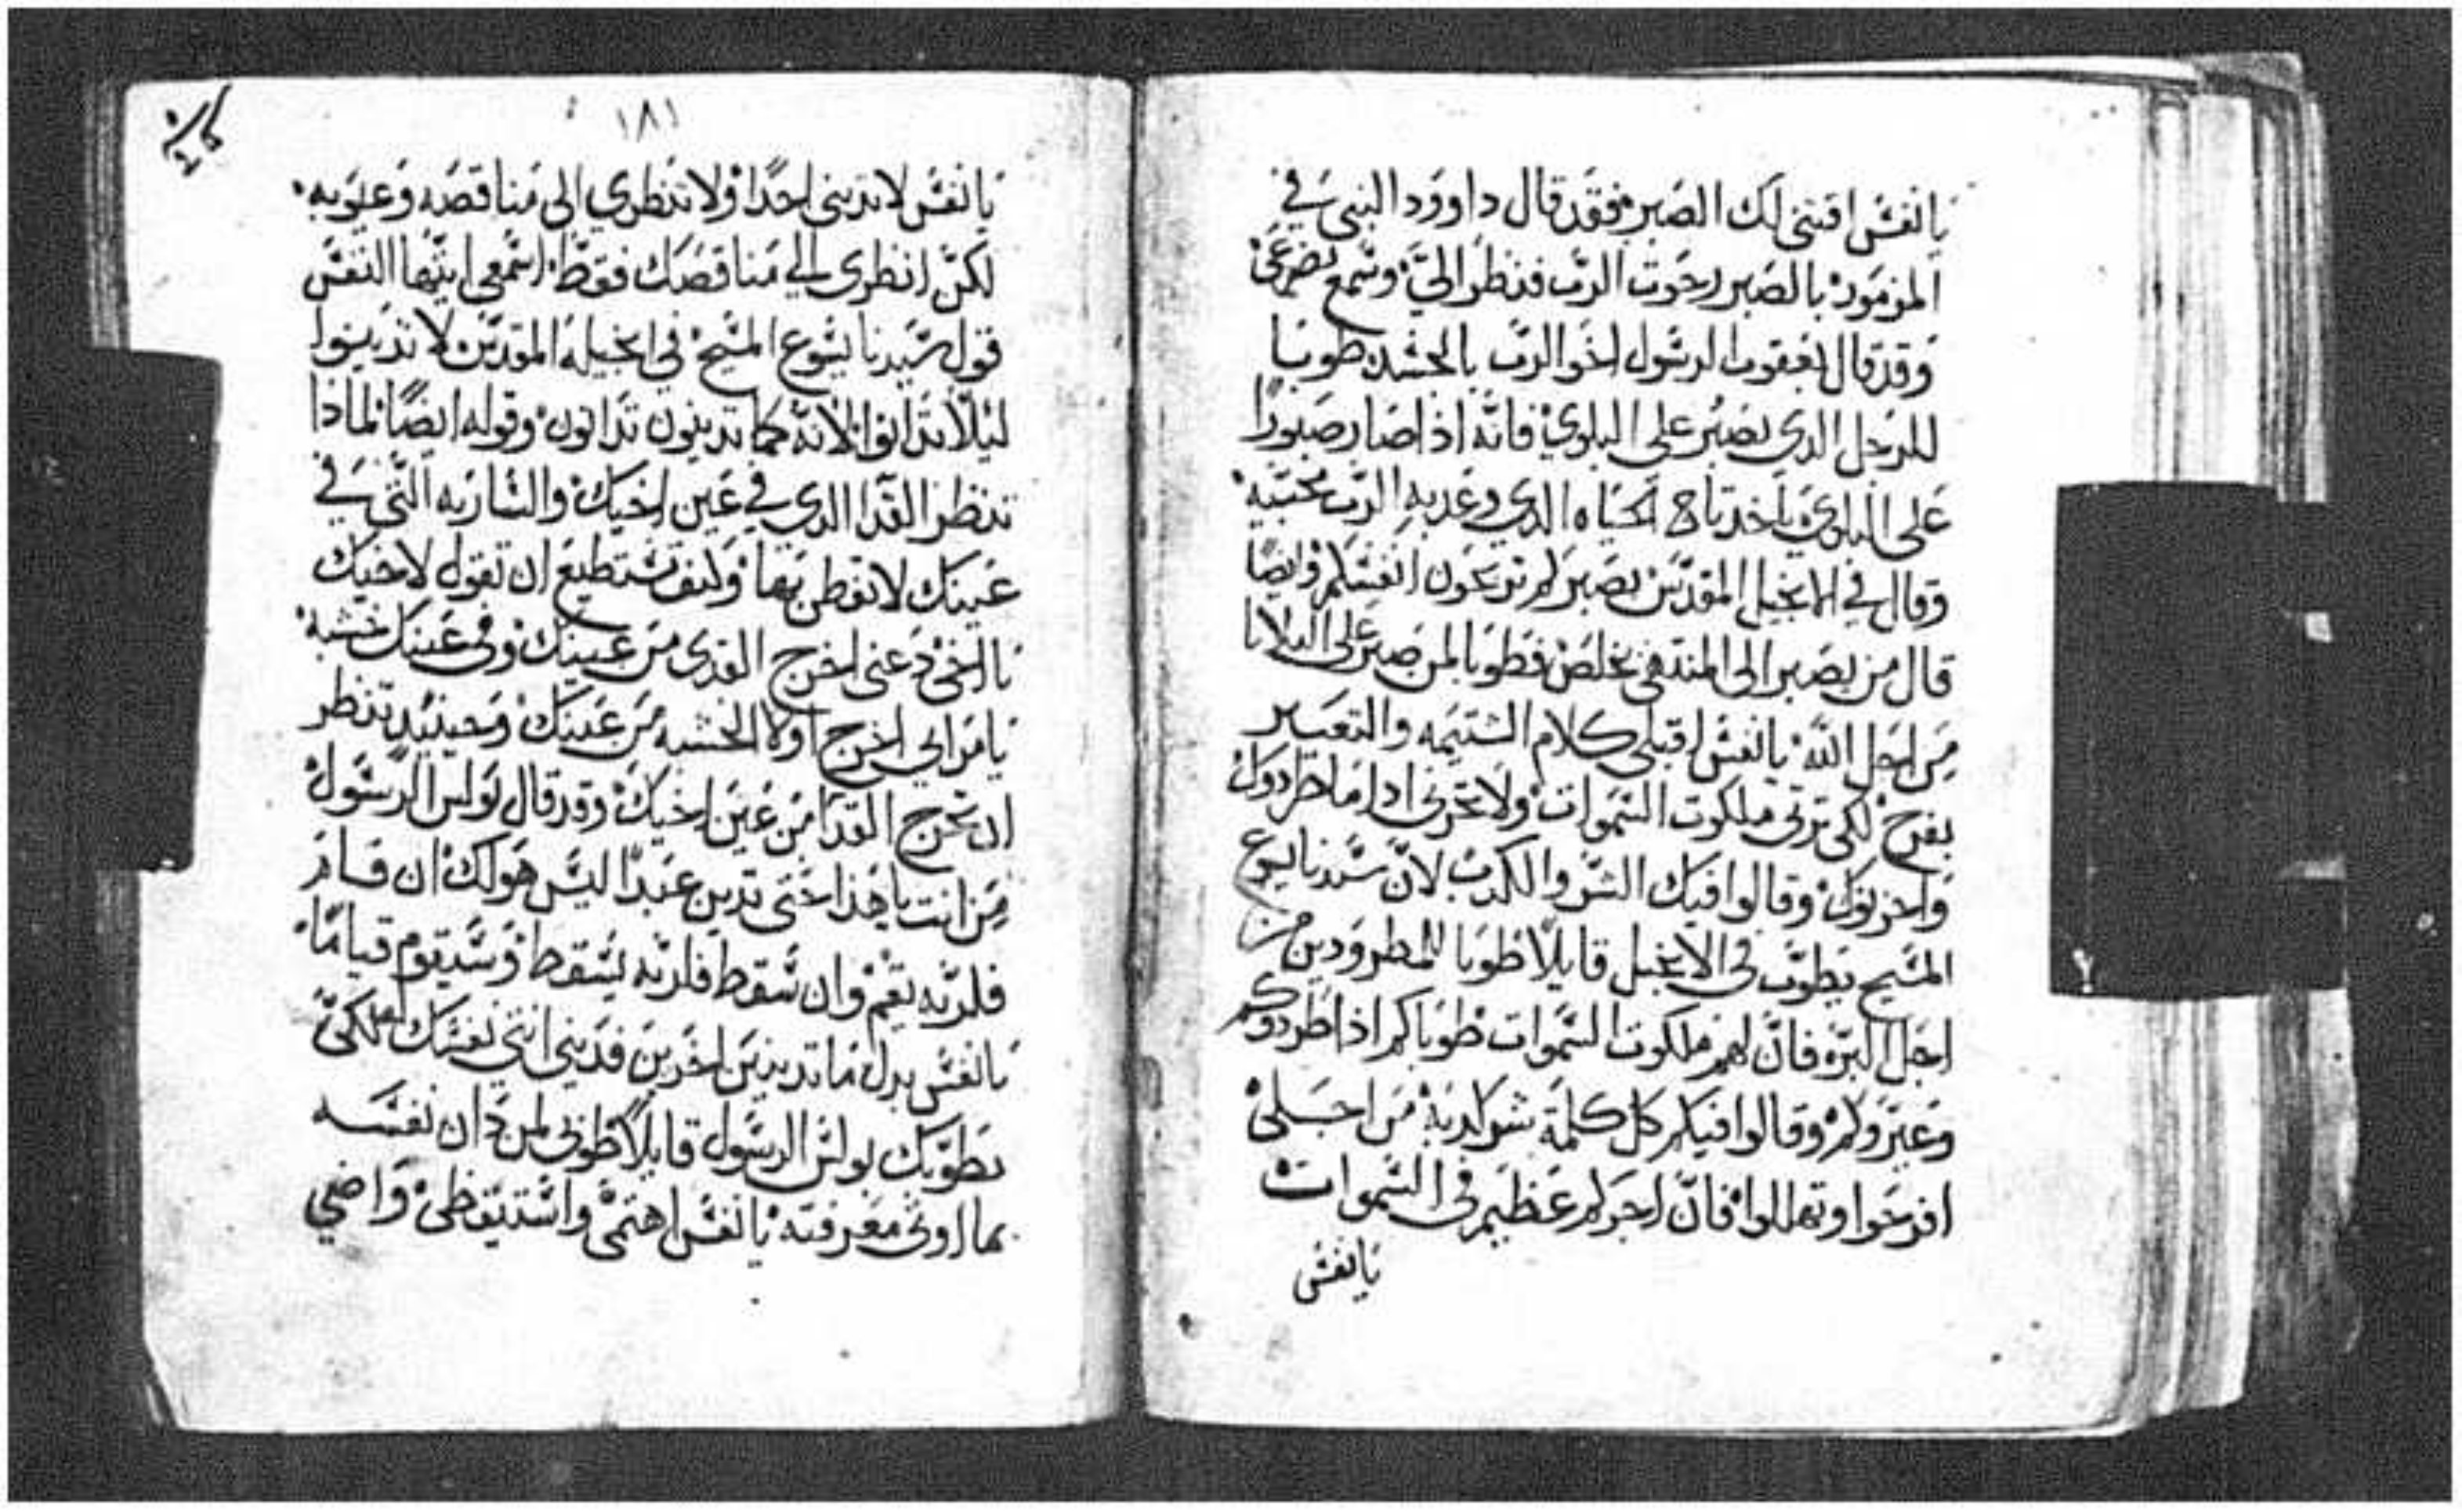 يا نفس اقتني لك الصبر فقد قال داوود النبي في
المزمور بالصبر رجوت الرب فنظر الي وسمع تضرعي
وقد قال يعقوب الرسول اخو الرب بالجسد طوبا
للرجل الدي يصبر على البلوي فانه اذا صار صبورًا
على البلوي ياخد تاج الحياه الدي وعد به الرب محبيه
وقال في الانجيل المقدس بصبركم تربحون انفسكم وايضًا
قال من يصبر الى المنتهى يخلص فطوبا لمن صبر على البلايا
من اجل الله يا نفس اقبلي كلام الشتيمه والتعيير
بفرح لكي ترتي ملكوت السموات ولا تحزني ادا ما طردوك
واحزنوك وقالوا فيك الشر والكدب لان سيدنا يسوع
المسيح يطوب في الانجيل قايلًا طوبا للمطرودين من
اجل البر فان لهم ملكوت السموات طوباكم اذا طردوكم
وعيروكم وقالوا فيكم كل كلمة شر كادبة من اجلي
افرحوا وتهللوا فان اجركم عظيم في السموات
يا نفس
١٨١
يا نفس لا تديني احدًا ولا تنظري الى مناقصه وعيوبه
لكن انظري الي مناقصك فقط اسمعي ايتها النفس
قول سيدنا يسوع المسيح في انجيله المقدس لا تدينوا
ليلا تدانوا لانه كما تدينون تدانون وقوله ايضًا لماذا
تنظر القدا الدي في عين اخيك والساريه التي في
عينك لا تفطن بها وكيف تستطيع ان تقول لاخيك
يا اخي دعني اخرج القدى من عينك وفي عينك خشبه
يا مرايي اخرج اولا الخشبه من عينك وحينيد تنظر
ان تخرج القدا من عين اخيك وقد قال بولس الرسول
من انت يا هذا حتى تدين عبدًا ليس هو لك ان قام
فلربه يقم وان سقط فلربه يسقط وسيقوم قيامًا
يا نفس بدل ما تدينين اخرين فديني انتي نفسك لكي
يطوبك بولس الرسول قايلًا طوبى لمن دان نفسه
بما اوتي معرفته يا نفس اهتمي واستيقظي واضي